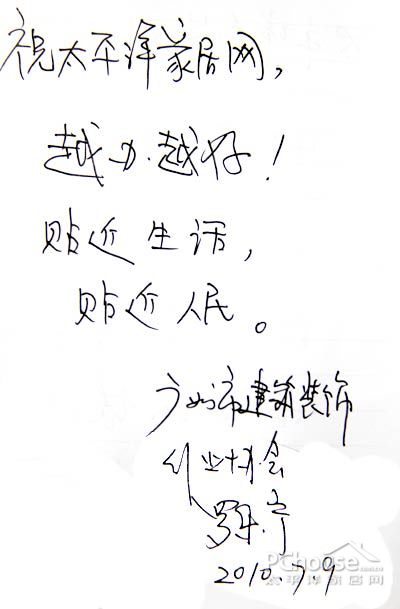 祝太平洋家居网，
越办越好！
贴近生活，
贴近人民。
广州市建筑装饰
行业协会
2010.7.9
PChouse
.com.cn
太平洋家居网